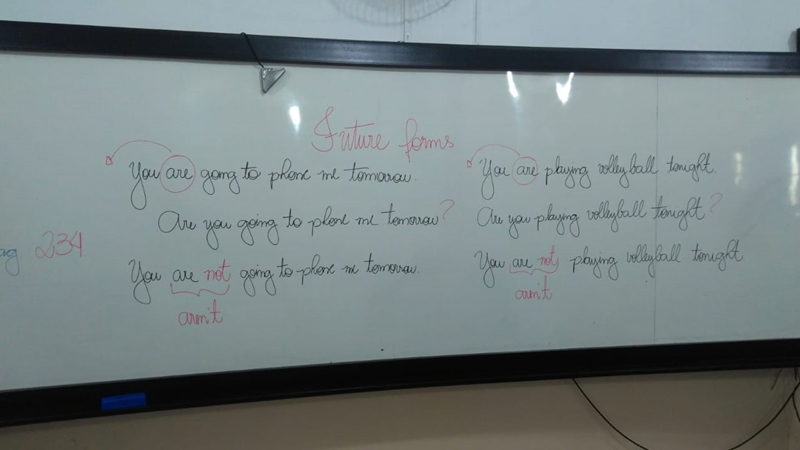 Future forms
You are going to phone me tomorrow.
Are you going to phone me tomorrow?
You are not going to phone me tomorrow.
aren't
You are playing volleyball tonight.
Are you playing volleyball tonight?
You are not playing volleyball tonight
aren't
ag 234